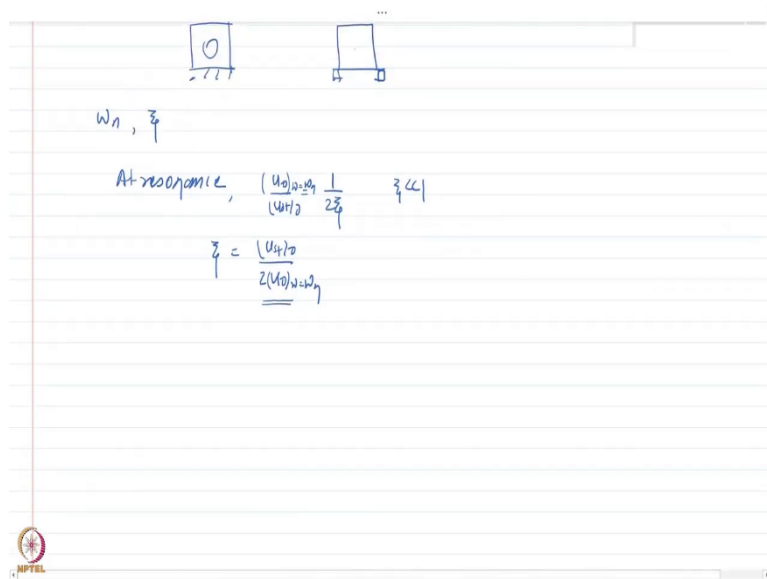 ωn, ξ
At resonance, (u0)ω=ωn / (ust)0 = 1 / 2ξ ξ<<1
ξ = (ust)0 / 2(u0)ω=ωn
NPTEL